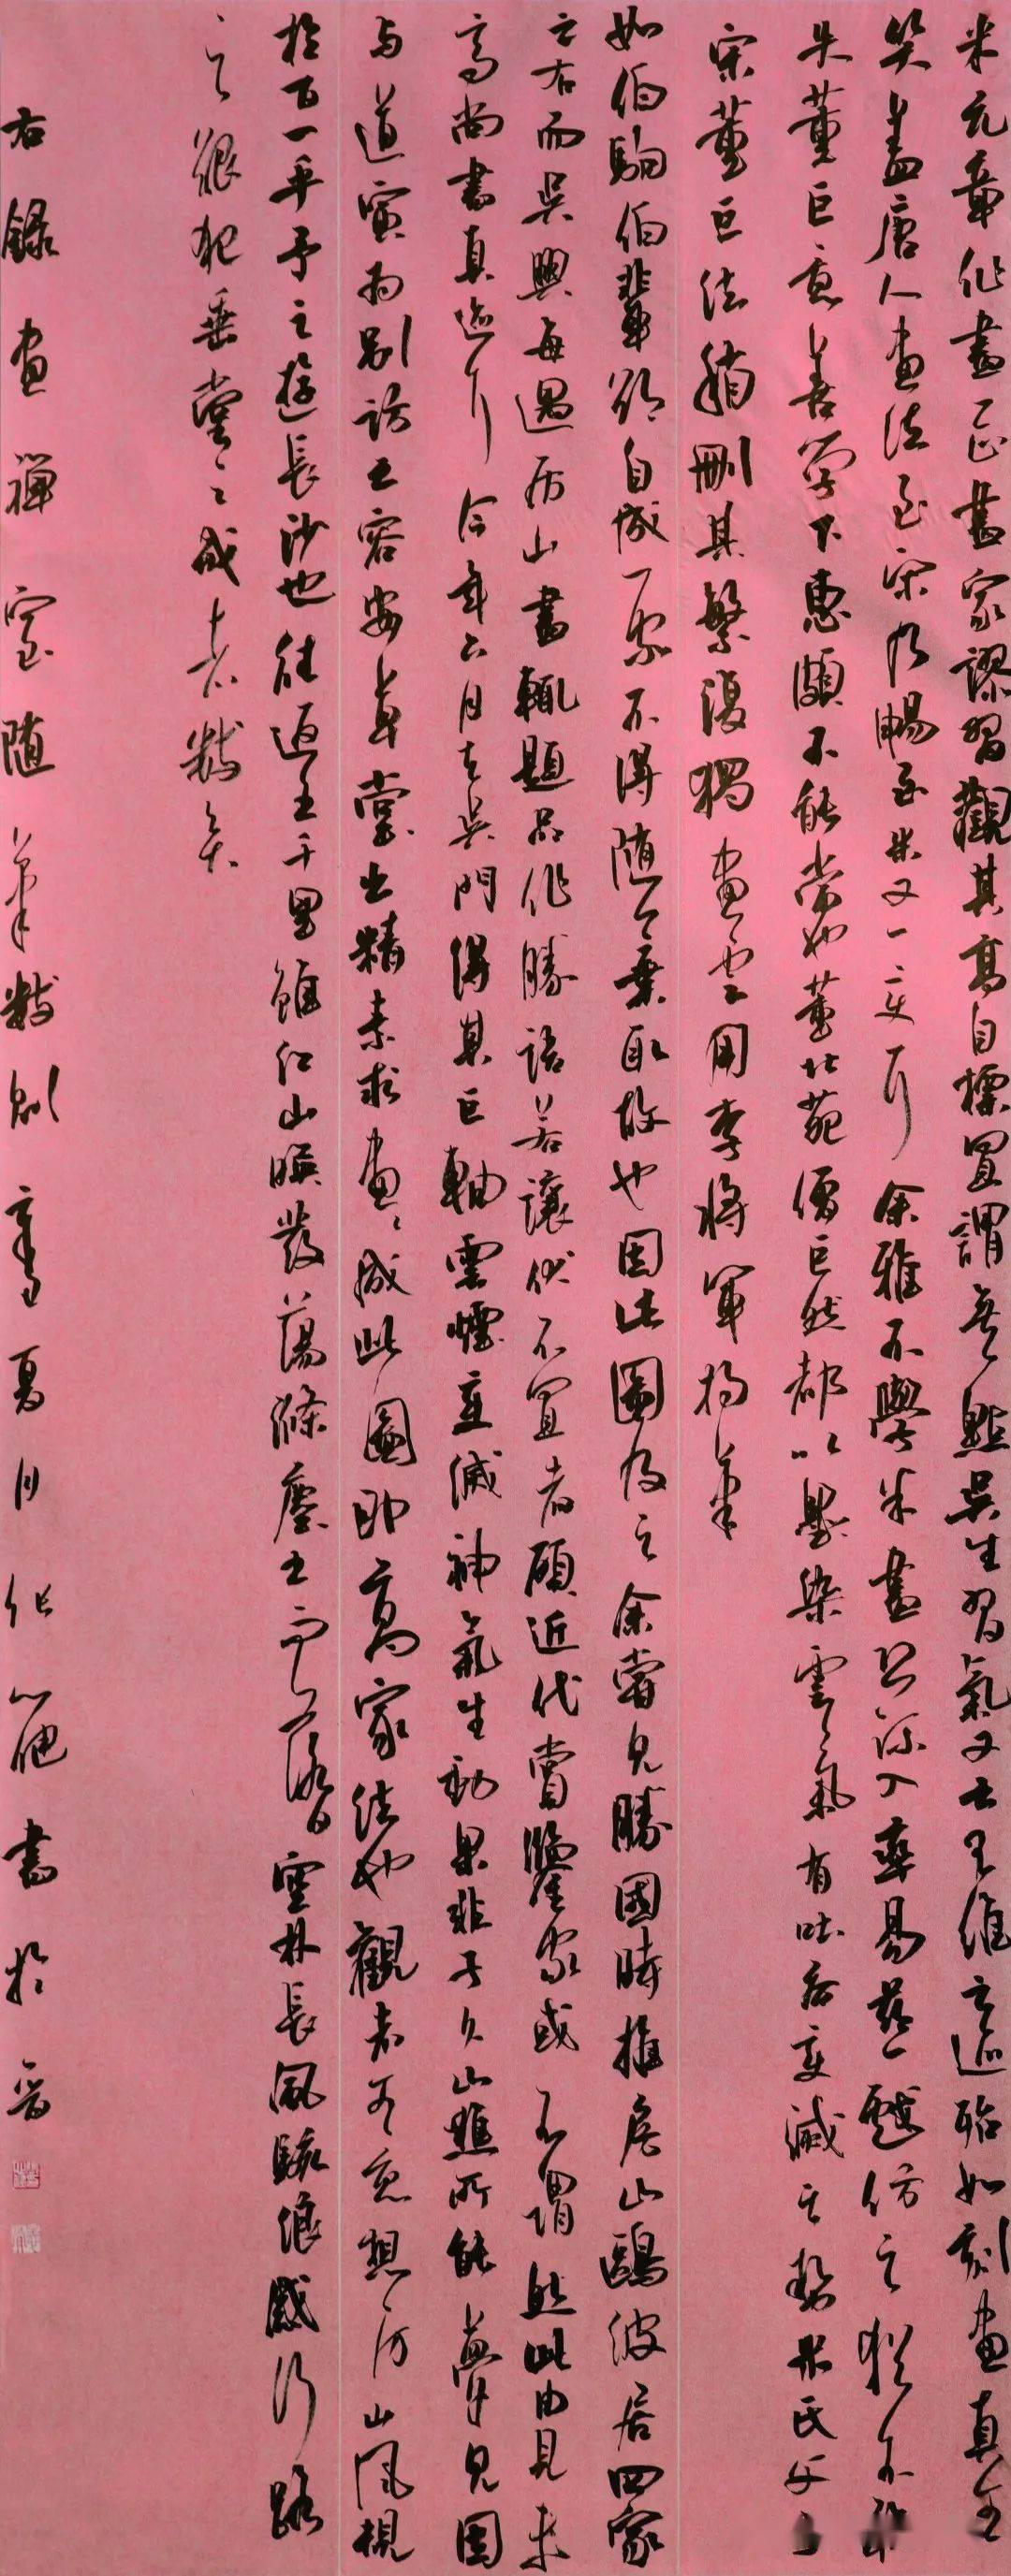 米元章作畫一正畫家謬習觀其高自標置謂無一點吳生習氣又云王維之迹殆如刻畫真一
笑蓋唐人畫法至宋乃暢至米又一變耳余雅不學米畫恐流入率易茲一戲仿之猶不敢
失董巨意善學下惠頗不能當也董北苑僧巨然都以墨染雲氣有吐吞變滅之勢米氏父子
宗董巨法稍刪其繁復獨畫雲用李將軍拘筆
如伯駒伯驌輩欲自成一家不得隨人棄取故也因此圖及之余嘗見勝國時推房山鷗波居四家
之右而吳興每遇房山畫輒題品作勝語若讓伏不置者顧近代賞鑒家或不謂然此由未見
高尚書真迹耳今年六月在吳門得其巨軸雲煙變滅神氣生動果非子久山樵所能夢見因
與道寅為別訪之容安草堂出精素求畫畫成此圖即高家法也觀者可意想房山風規
於百一乎予之遊長沙也往返五千里雖江山映發蕩滌塵土而落日空林長風駭浪感行路
之艱犯垂堂之戒者數矣
右錄畫禪室隨筆數則辛丑夏月 書於